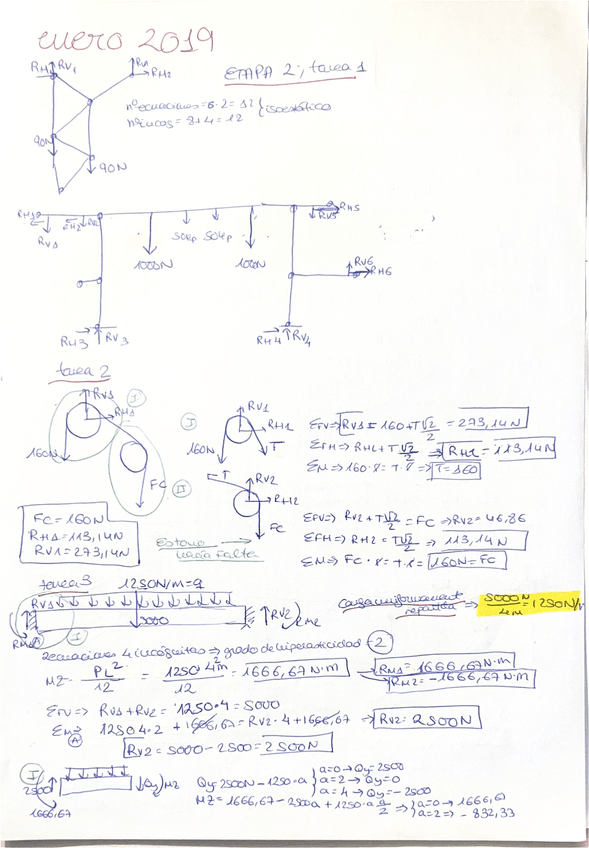 enero 2019
RH1 RV1 RV2 RH2
ETAPA 2, tarea 1
nºecuaciones = 6·2 = 12 } isoestático
nºincógs = 8+4 = 12
90N
90N
RV1
1000N
50kp 50kp
1000N
RH5
RV5
RV6
RH6
RH3 RV3
RH4 RV4
tarea 2
RV1
RH1
I
160N
FC
II
I
RV1
RH1
160N T
ΣFV ⇒ RV1 = 160 + T√2/2 = 273,14N
ΣFH ⇒ RH1 + T√2/2 ⇒ RH1 = 113,14N
ΣM ⇒ 160·r = T·r ⇒ T=160
T RV2
RH2
FC
ΣFV ⇒ RV2 + T√2/2 = FC ⇒ RV2 = 46,86
ΣFH ⇒ RH2 = T√2/2 ⇒ 113,14N
ΣM ⇒ FC·r = T·r ⇒ 160N = FC
FC = 160N
RH1 = 113,14N
RV1 = 273,14N
Esto no hacía falta
tarea 3
1250N/m = q
RV1
5000
RV2
RM2
I
Carga uniformemente repartida ⇒ 5000N/4m = 1250N/m
2 ecuaciones 4 incógnitas ⇒ grado de hiperasticidad = 2
MZ = PL²/12 = 1250·4²m/12 = 1666,67 N·m
RM1 = 1666,67 N·m
RM2 = -1666,67 N·m
ΣFV ⇒ RV1 + RV2 = 1250·4 = 5000
ΣM(A) ⇒ 1250·4·2 + 1666,67 = RV2·4 + 1666,67 ⇒ RV2 = 2500N
RV2 = 5000 - 2500 = 2500N
I
2500
1666,67
Qy MZ
Qy = 2500N - 1250·a } a=0 → Qy = 2500
a=2 → Qy = 0
a=4 → Qy = -2500
MZ = 1666,67 - 2500a + 1250·a a/2 ⇒ } a=0 → 1666,67
a=2 → -832,33